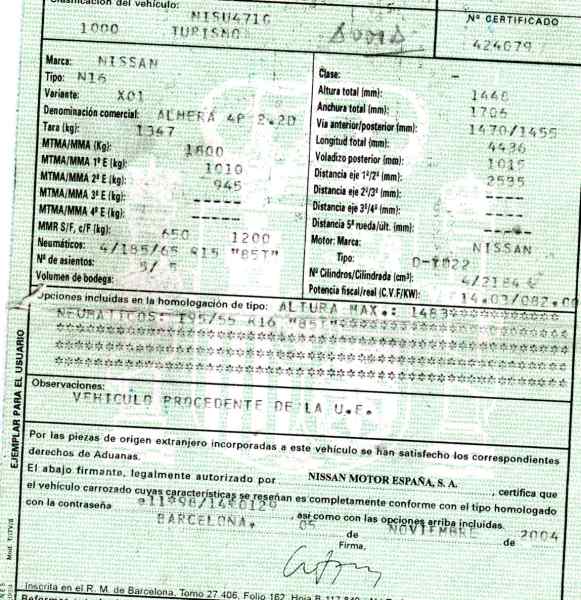 Clasificación del vehículo:
NISU4710
1000 TURISMO
Nº CERTIFICADO
424079
Marca: NISSAN
Tipo: N16
Variante: X01
Denominación comercial: ALMERA 4P 2.2D
Tara (kg): 1347
MTMA/MMA (Kg): 1800
MTMA/MMA 1º E (kg): 1010
MTMA/MMA 2º E (kg): 945
MTMA/MMA 3º E (kg): -----
MTMA/MMA 4º E (kg): -----
MMR S/F, c/F (kg): 650 1200
Neumáticos: 4/185/65 R15 "85T"
Nº de asientos: 5/
Volumen de bodega:
Clase: -
Altura total (mm): 1448
Anchura total (mm): 1706
Via anterior/posterior (mm): 1470/1455
Longitud total (mm): 4436
Voladizo posterior (mm): 1015
Distancia eje 1º/2º (mm): 2535
Distancia eje 2º/3º (mm): -----
Distancia eje 3º/4º (mm): -----
Distancia 5ª rueda/últ. (mm): -----
Motor: Marca: NISSAN
Tipo: D-YD22
Nº Cilindros/Cilindrada (cm³): 4/2184
Potencia fiscal/real (C.V.F/KW): 14.03/082.00
Opciones incluidas en la homologación de tipo: ALTURA MAX.: 1483************
NEUMATICOS: 195/55 R16 "85T"************************
****************************************************
****************************************************
****************************************************
Observaciones:
VEHICULO PROCEDENTE DE LA U.E.
EJEMPLAR PARA EL USUARIO
Por las piezas de origen extranjero incorporadas a este vehículo se han satisfecho los correspondientes
derechos de Aduanas.
El abajo firmante, legalmente autorizado por NISSAN MOTOR ESPAÑA, S. A. , certifica que
el vehículo carrozado cuyas características se reseñan es completamente conforme con el tipo homologado
con la contraseña e11*98/14*0129 , así como con las opciones arriba incluidas.
BARCELONA. 05 de NOVIEMBRE de 2004
Firma,
Inscrita en el R. M. de Barcelona, Tomo 27.406, Folio 162, Hoja B